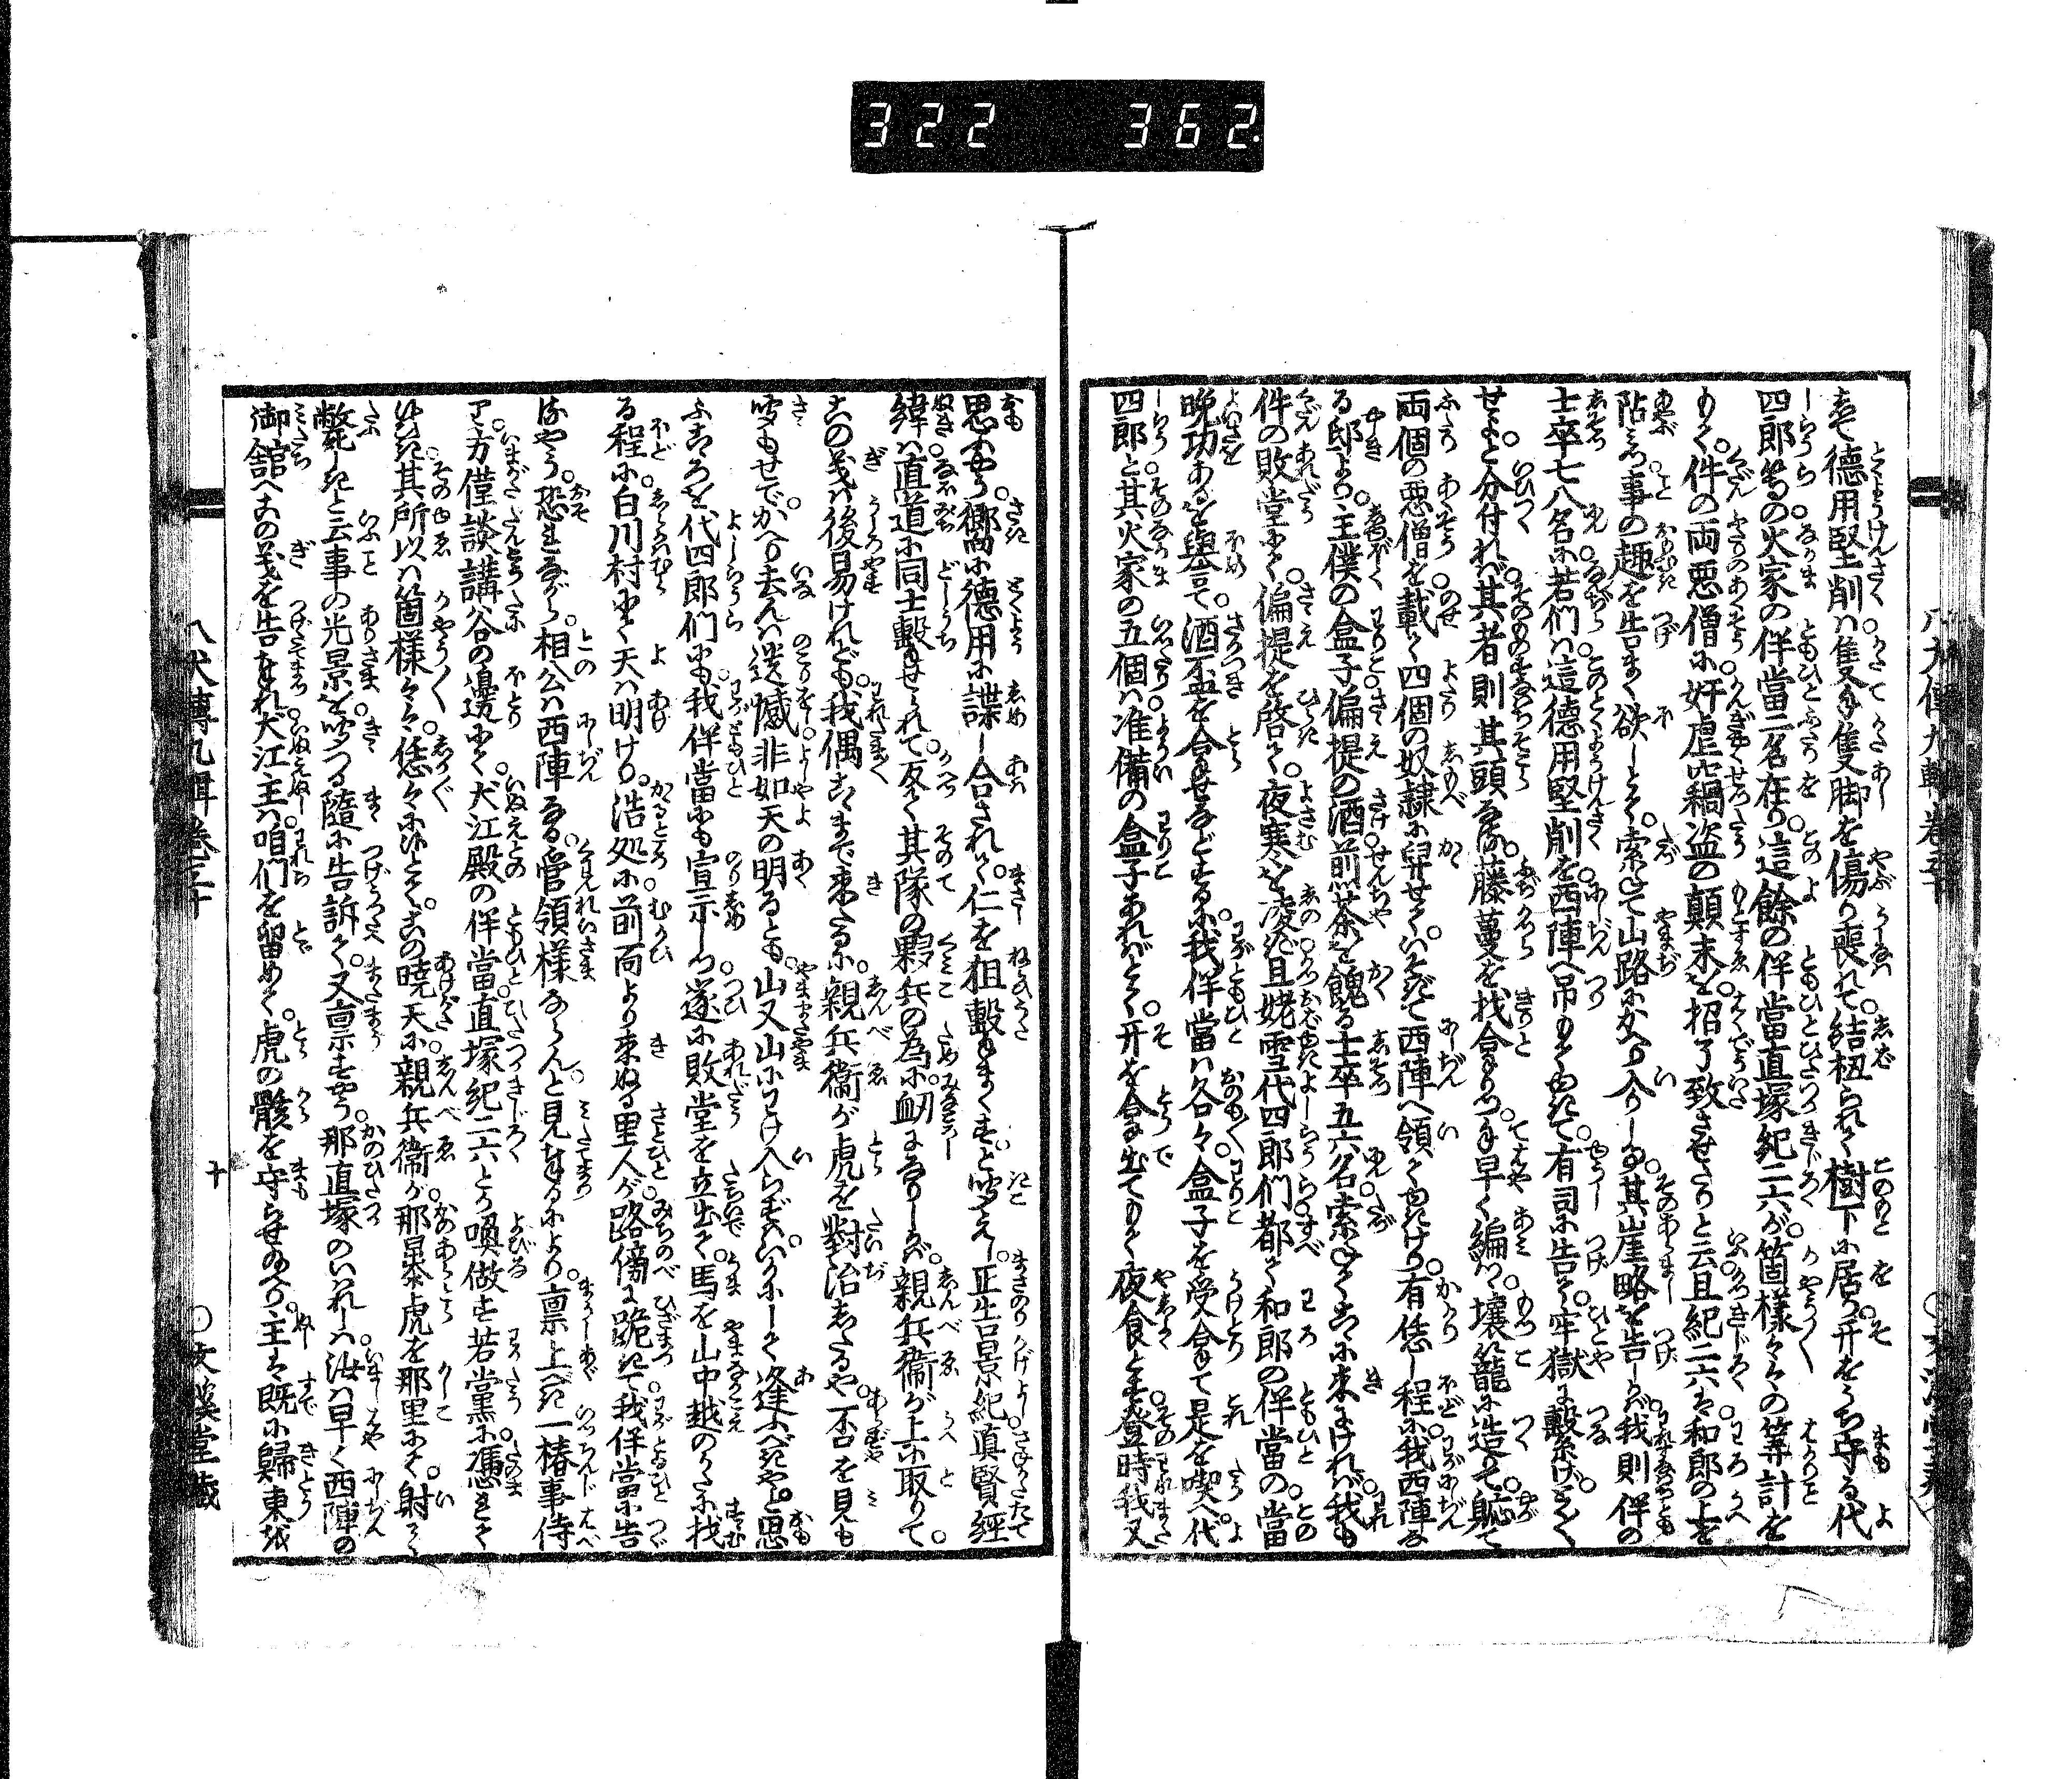 322 362
八犬傳九輯卷三十
て德用堅削ハ隻手隻脚を傷り喪れて結紐られて樹下に居り开をうち守る代
四郎等の火家の伴當二名在り這餘の伴當直塚紀二六が箇樣々々の筭計を
もて件の両惡僧に奸虐窩盗の顛末を招了致させたりと云且紀二六は和郎の上を
阽み事の趣を告まく欲しとて索ねて山路にかへり入りしに其崖略を告しかば我則伴の
士卒七八名に若們ハ這德用堅削を西陣へ吊もてゆきて有司に告て牢獄に繋げとく
せよと分付れバ其者則其頭なる藤蔓を找合りつゝ手早く編て壤籠に造りて躯て
両個の惡僧を載て四個の奴隷に舁せていそぎて西陣へ領てゆきけり有恁し程に我西陣な
る邸より主僕の盒子偏提の酒煎茶を餽る士卒五六名索ねてこゝに来にけれバ我も
件の敗堂にて偏提を啓て夜寒を凌ぎ且姥雪代四郎們都て和郎の伴當の當
晩功あるを譽て酒盃を合せなどするに我伴當ハ各々盒子を受合て是を喫代
四郎と其火家の五個ハ准備の盒子あればとて开を合出てもて夜食とす登時我又
思ふやう嚮に德用に諜し合されて仁を狙撃まくすと聞えし正告景紀眞賢經
緯ハ直道に同士撃せられて反て其隊の夥兵の為に衂にしかバ親兵衞が上に取りて
この義ハ後易けれども我偶こゝまで来たるに親兵衞が虎を對治したるや否を見も
聞もせでかへり去んハ遺憾非如天の明るとも山又山にわけ入らずハいかにして逢ふべきやと思
ふこゝろを代四郎們にも我伴當にも宣示しつ遂に敗堂を立出て馬を山中越のかたに找
る程に白川村にて天ハ明けり浩処に前面より来ぬる里人が路傍に跪きて我伴當に告
るやう恐れながら相公ハ西陣なる管領樣ならんと見奉るにより稟上べき一椿事侍
り今方僅談講谷の邊にて犬江殿の伴當直塚紀二六とか喚做す若黨に憑れて
候ひき其所以ハ箇樣々々恁々に候とてこの曉天に親兵衞が那暴虎を那里にて射て
斃しきと云事の光景を聞つる隨に告訴て又稟すやう那直塚のいはれしハ汝ハ早く西陣の
御館へこの義を告奉れ犬江主ハ咱們を留めて虎の骸を守らせ給へり主は既に歸東を
八犬傳九輯卷三十
十
○文溪堂藏